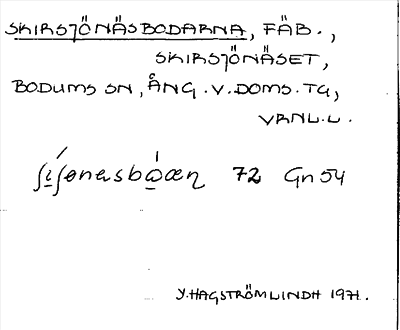 SKIRSJÖNÄSBODARNA, FÄB.,
SKIRSJÖNÄSET,
BODUMS SN, ÅNG. V. DOMS. TG,
VRNL.L.
72 Gn 54
Y. HAGSTRÖMLINDH 1971.